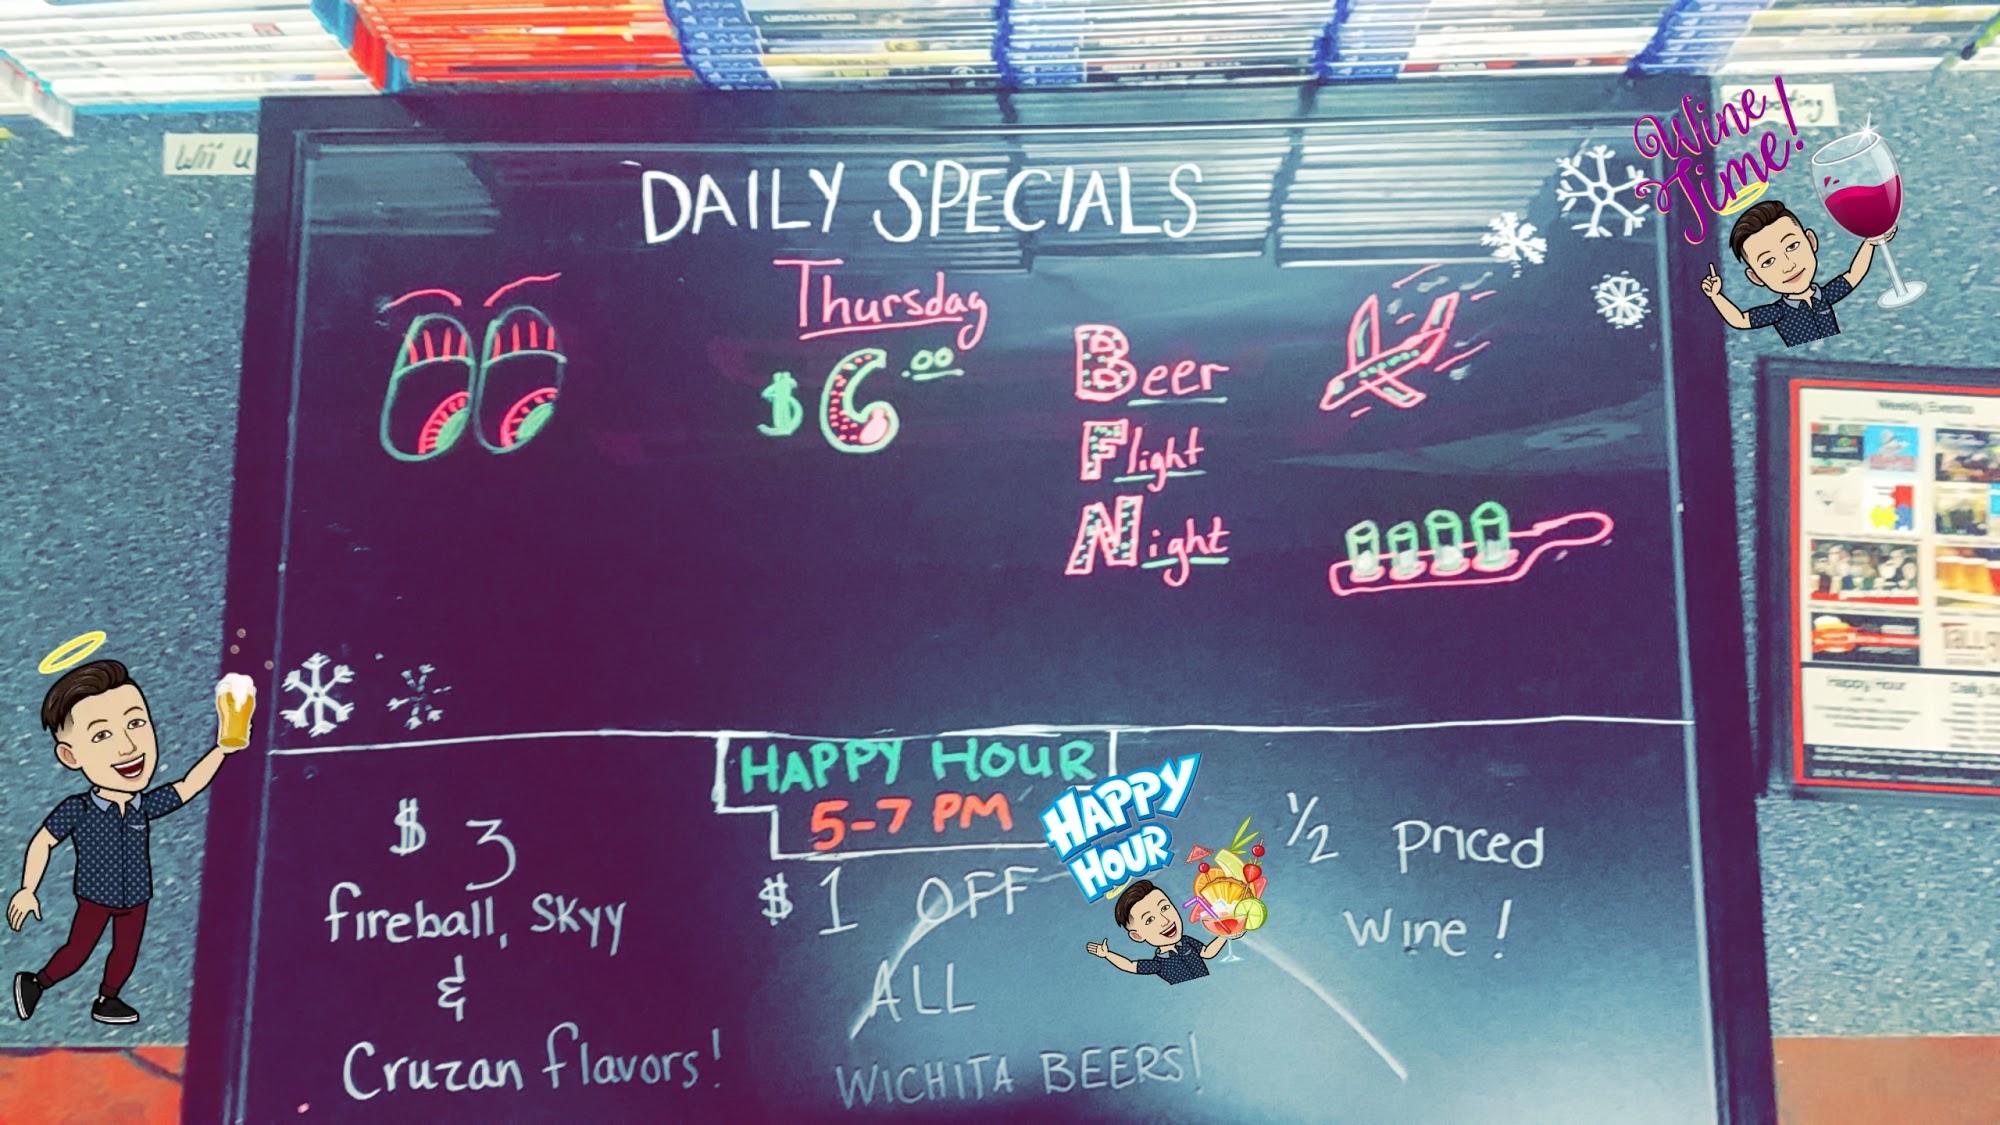 UNCHARTED
Wii U
Sporting
Wine
Time!
DAILY SPECIALS
Thursday
$6.00
Beer
Flight
Night
Weekly Events
Happy Hour
HAPPY HOUR
5-7 PM
HAPPY
HOUR
$3
fireball, SKyy
&
Cruzan flavors!
$1 OFF
ALL
WICHITA BEERS!
1/2 Priced
Wine!